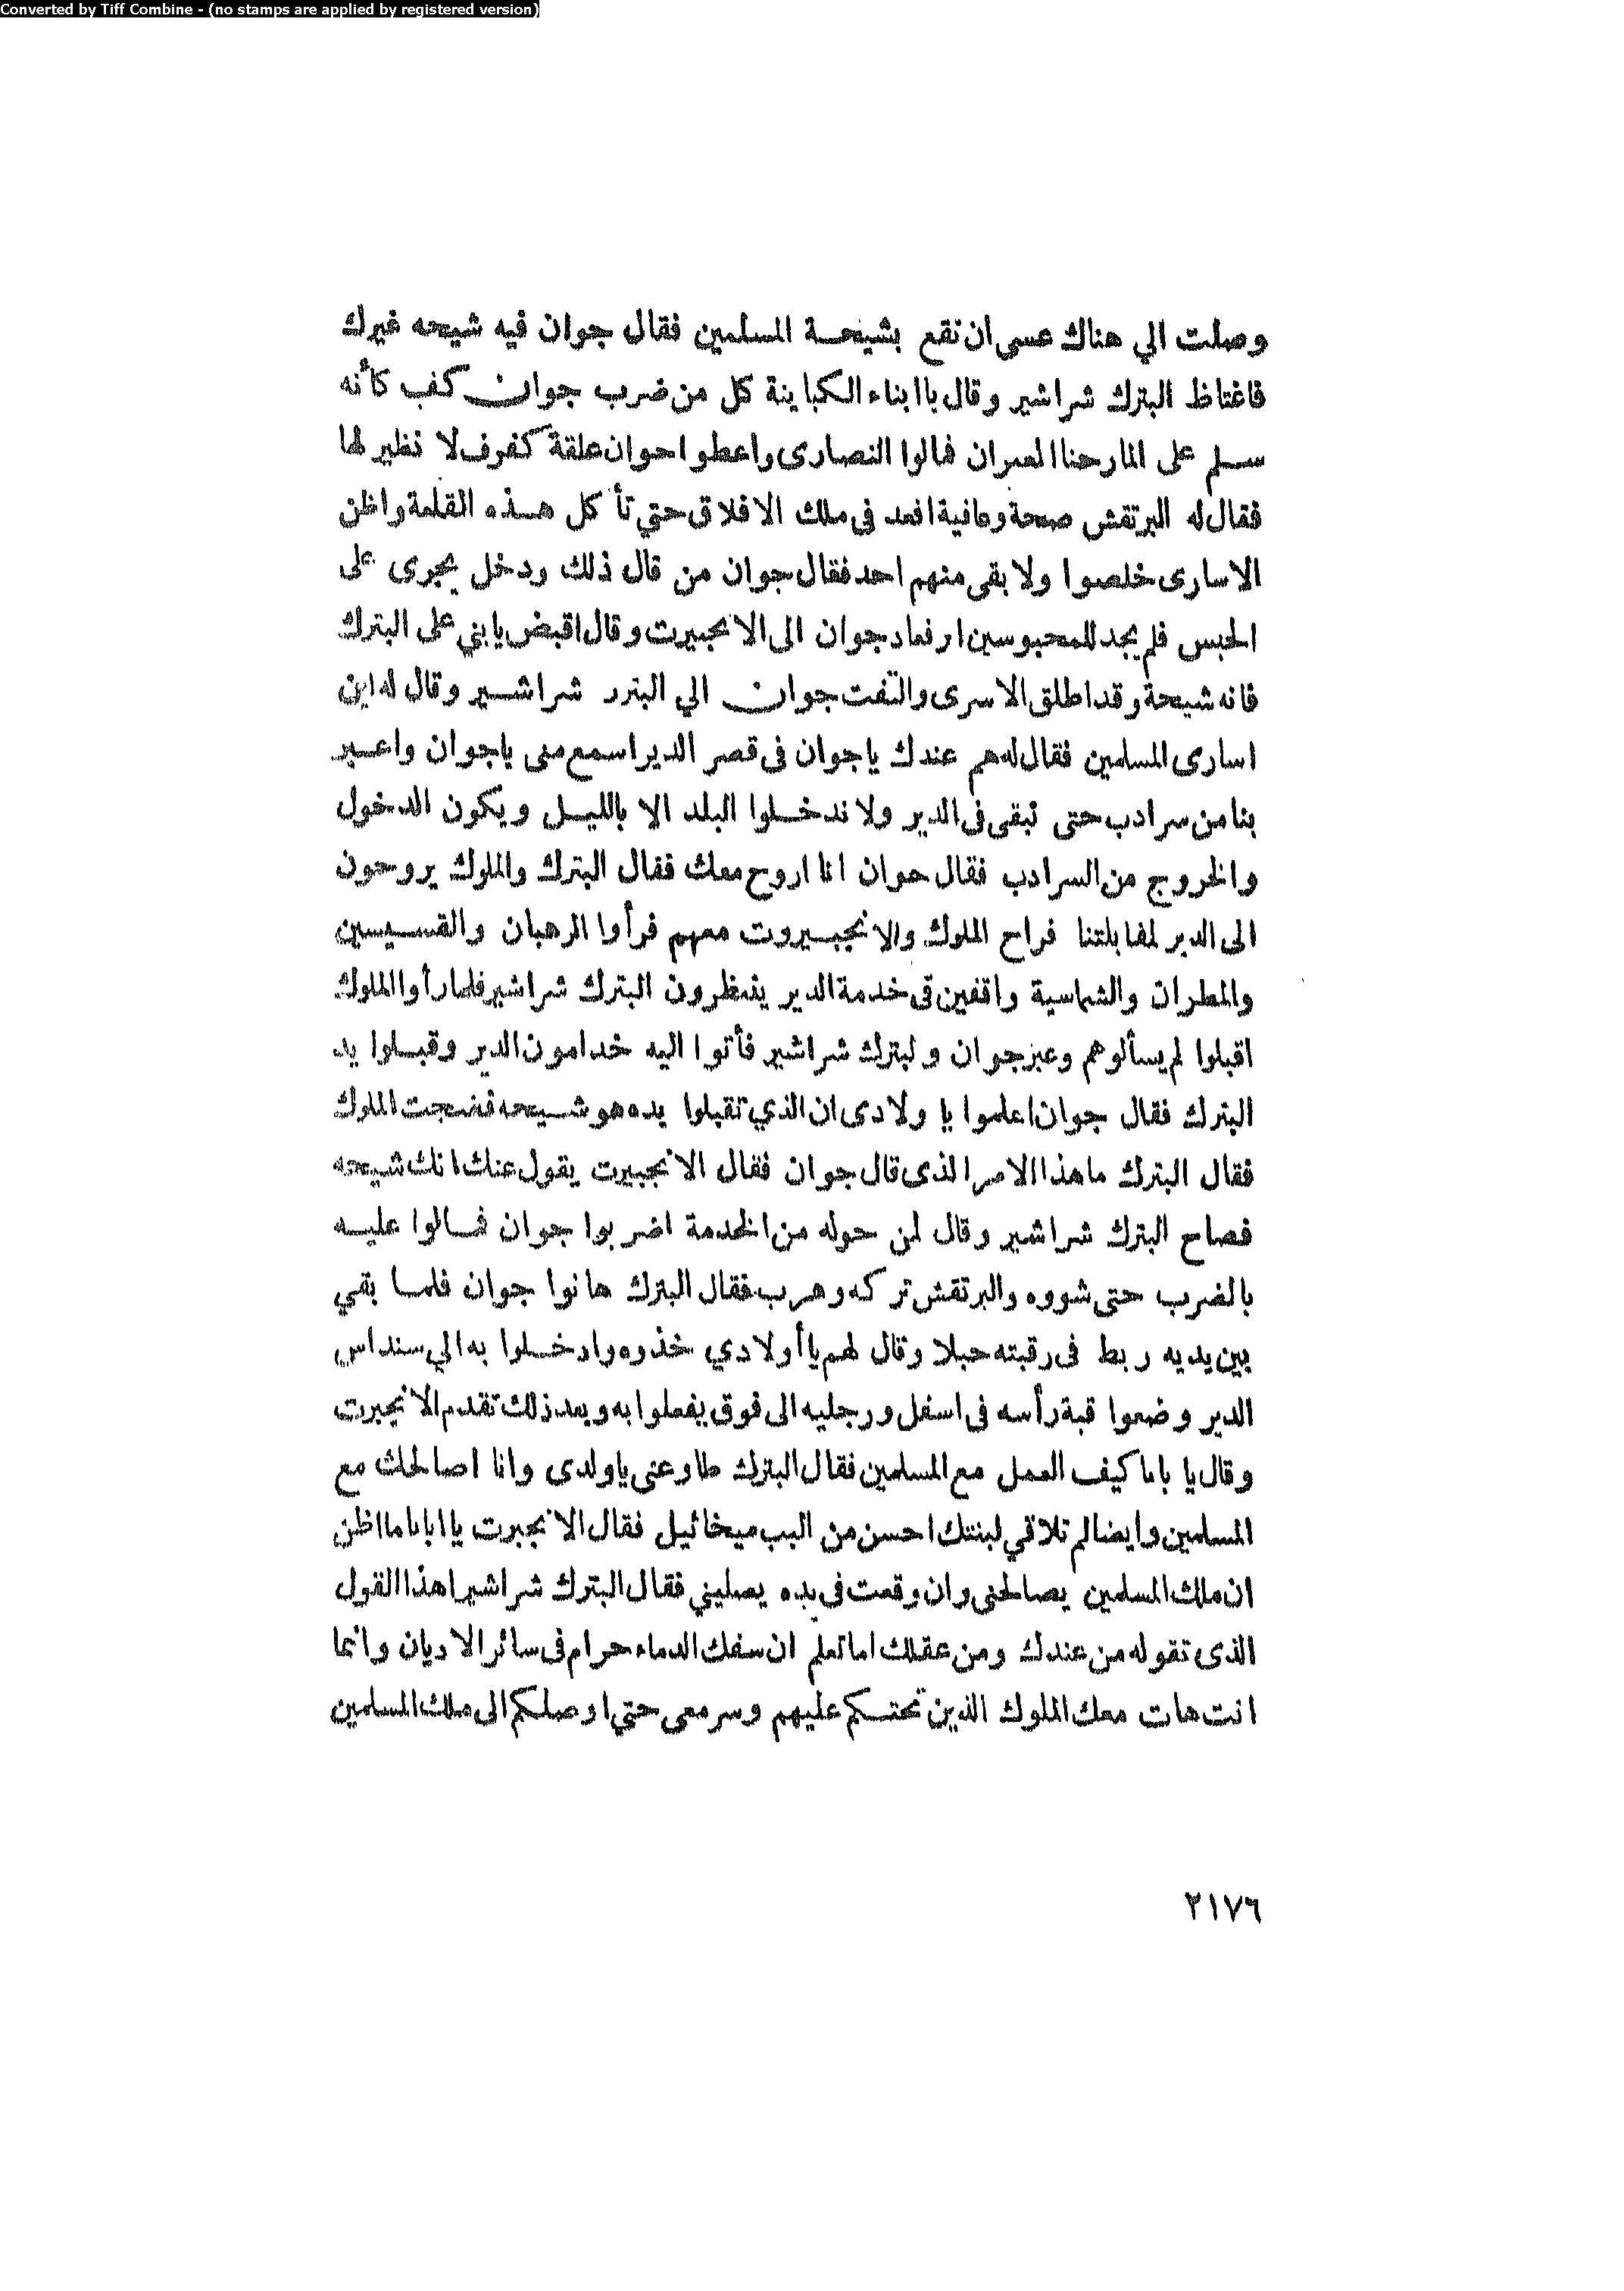 Converted by Tiff Combine - (no stamps are applied by registered version)
وصلت الي هناك عسى ان تقع بشيحة المسلمين فقال جوان فيه شيحه غيرك
فاغتاظ البترك شراشير وقال باابناء الكباينة كل من ضرب جوان كف كأنه
سلم على المارحنا المعمران فمالوا النصارى واعطوا جوان علقة كفوف لا نظير لها
فقال له البرتقش صحة وعافية اقعد فى ملك الافلاق حتي تأكل هذه القلعة واظن
الاسارى خلصوا ولا بقى منهم احد فقال جوان من قال ذلك ودخل يجرى على
الحبس فلم يجد للمحبوسين ار فعاد جوان الى الانجبيرت وقال اقبض يابني على البترك
فانه شيحة وقد اطلق الاسرى والتفت جوان الي البترد شراشير وقال له اين
اسارى المسلمين فقال له هم عندك ياجوان فى قصر الدير اسمع منى ياجوان واعبر
بنا من سرادب حتى نبقى فى الدير ولا ندخلوا البلد الا بالليل ويكون الدخول
والخروج من السرادب فقال جوان انا اروح معك فقال البترك والملوك يروحون
الى الدير لمقابلتنا فراح الملوك والانجبيروت معهم فرأوا الرهبان والقسيسين
والمطران والشماسية واقفين فى خدمة الدير ينتظرون البترك شراشير فلما رأوا الملوك
اقبلوا لم يسألوهم وعبر جوان ولبترك شراشير فأتوا اليه خدامون الدير وقبلوا يد
البترك فقال جوان اعلموا يا ولادى ان الذي تقبلوا يده هو شيحه فضجت الملوك
فقال البترك ماهذا الامر الذى قال جوان فقال الانجبيرت يقول عنك انك شيحه
فصاح البترك شراشير وقال لمن حوله من الخدمة اضربوا جوان فمالوا عليه
بالضرب حتى شووه والبرتقش تركه وهرب فقال البترك هاتوا جوان فلما بقي
بين يديه ربط فى رقبته حبلا وقال لهم يا أولادي خذوه وادخلوا به الي سنداس
الدير وضعوا قبة رأسه فى اسفل ورجليه الى فوق يفعلوا به وبعد ذلك تقدم الانجبرت
وقال يا باما كيف العمل مع المسلمين فقال البترك طاوعنى ياولدى وانا اصالحك مع
المسلمين وايضا لم تلاقي لبنتك احسن من البب ميخائيل فقال الانجبرت ياابابا ما اظن
ان ملك المسلمين يصالحنى وان وقعت فى يده يصلبني فقال البترك شراشير اهذا القول
الذى تقوله من عندك ومن عقلك اما تعلم ان سفك الدماء حرام فى سائر الاديان وانما
انت هات معك الملوك الذين تحتكم عليهم وسر معى حتي اوصلكم الى ملك المسلمين
٢١٧٦